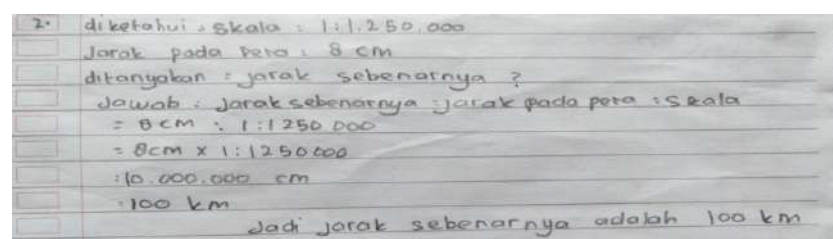 2. diketahui : skala : 1:1.250.000
Jarak pada Peta : 8 cm
ditanyakan : jarak sebenarnya ?
Jawab : Jarak sebenarnya : jarak pada peta : skala
= 8 cm : 1:1250 000
= 8cm x 1:1250000
:10.000.000 cm
:100 km
Jadi jarak sebenarnya adalah 100 km